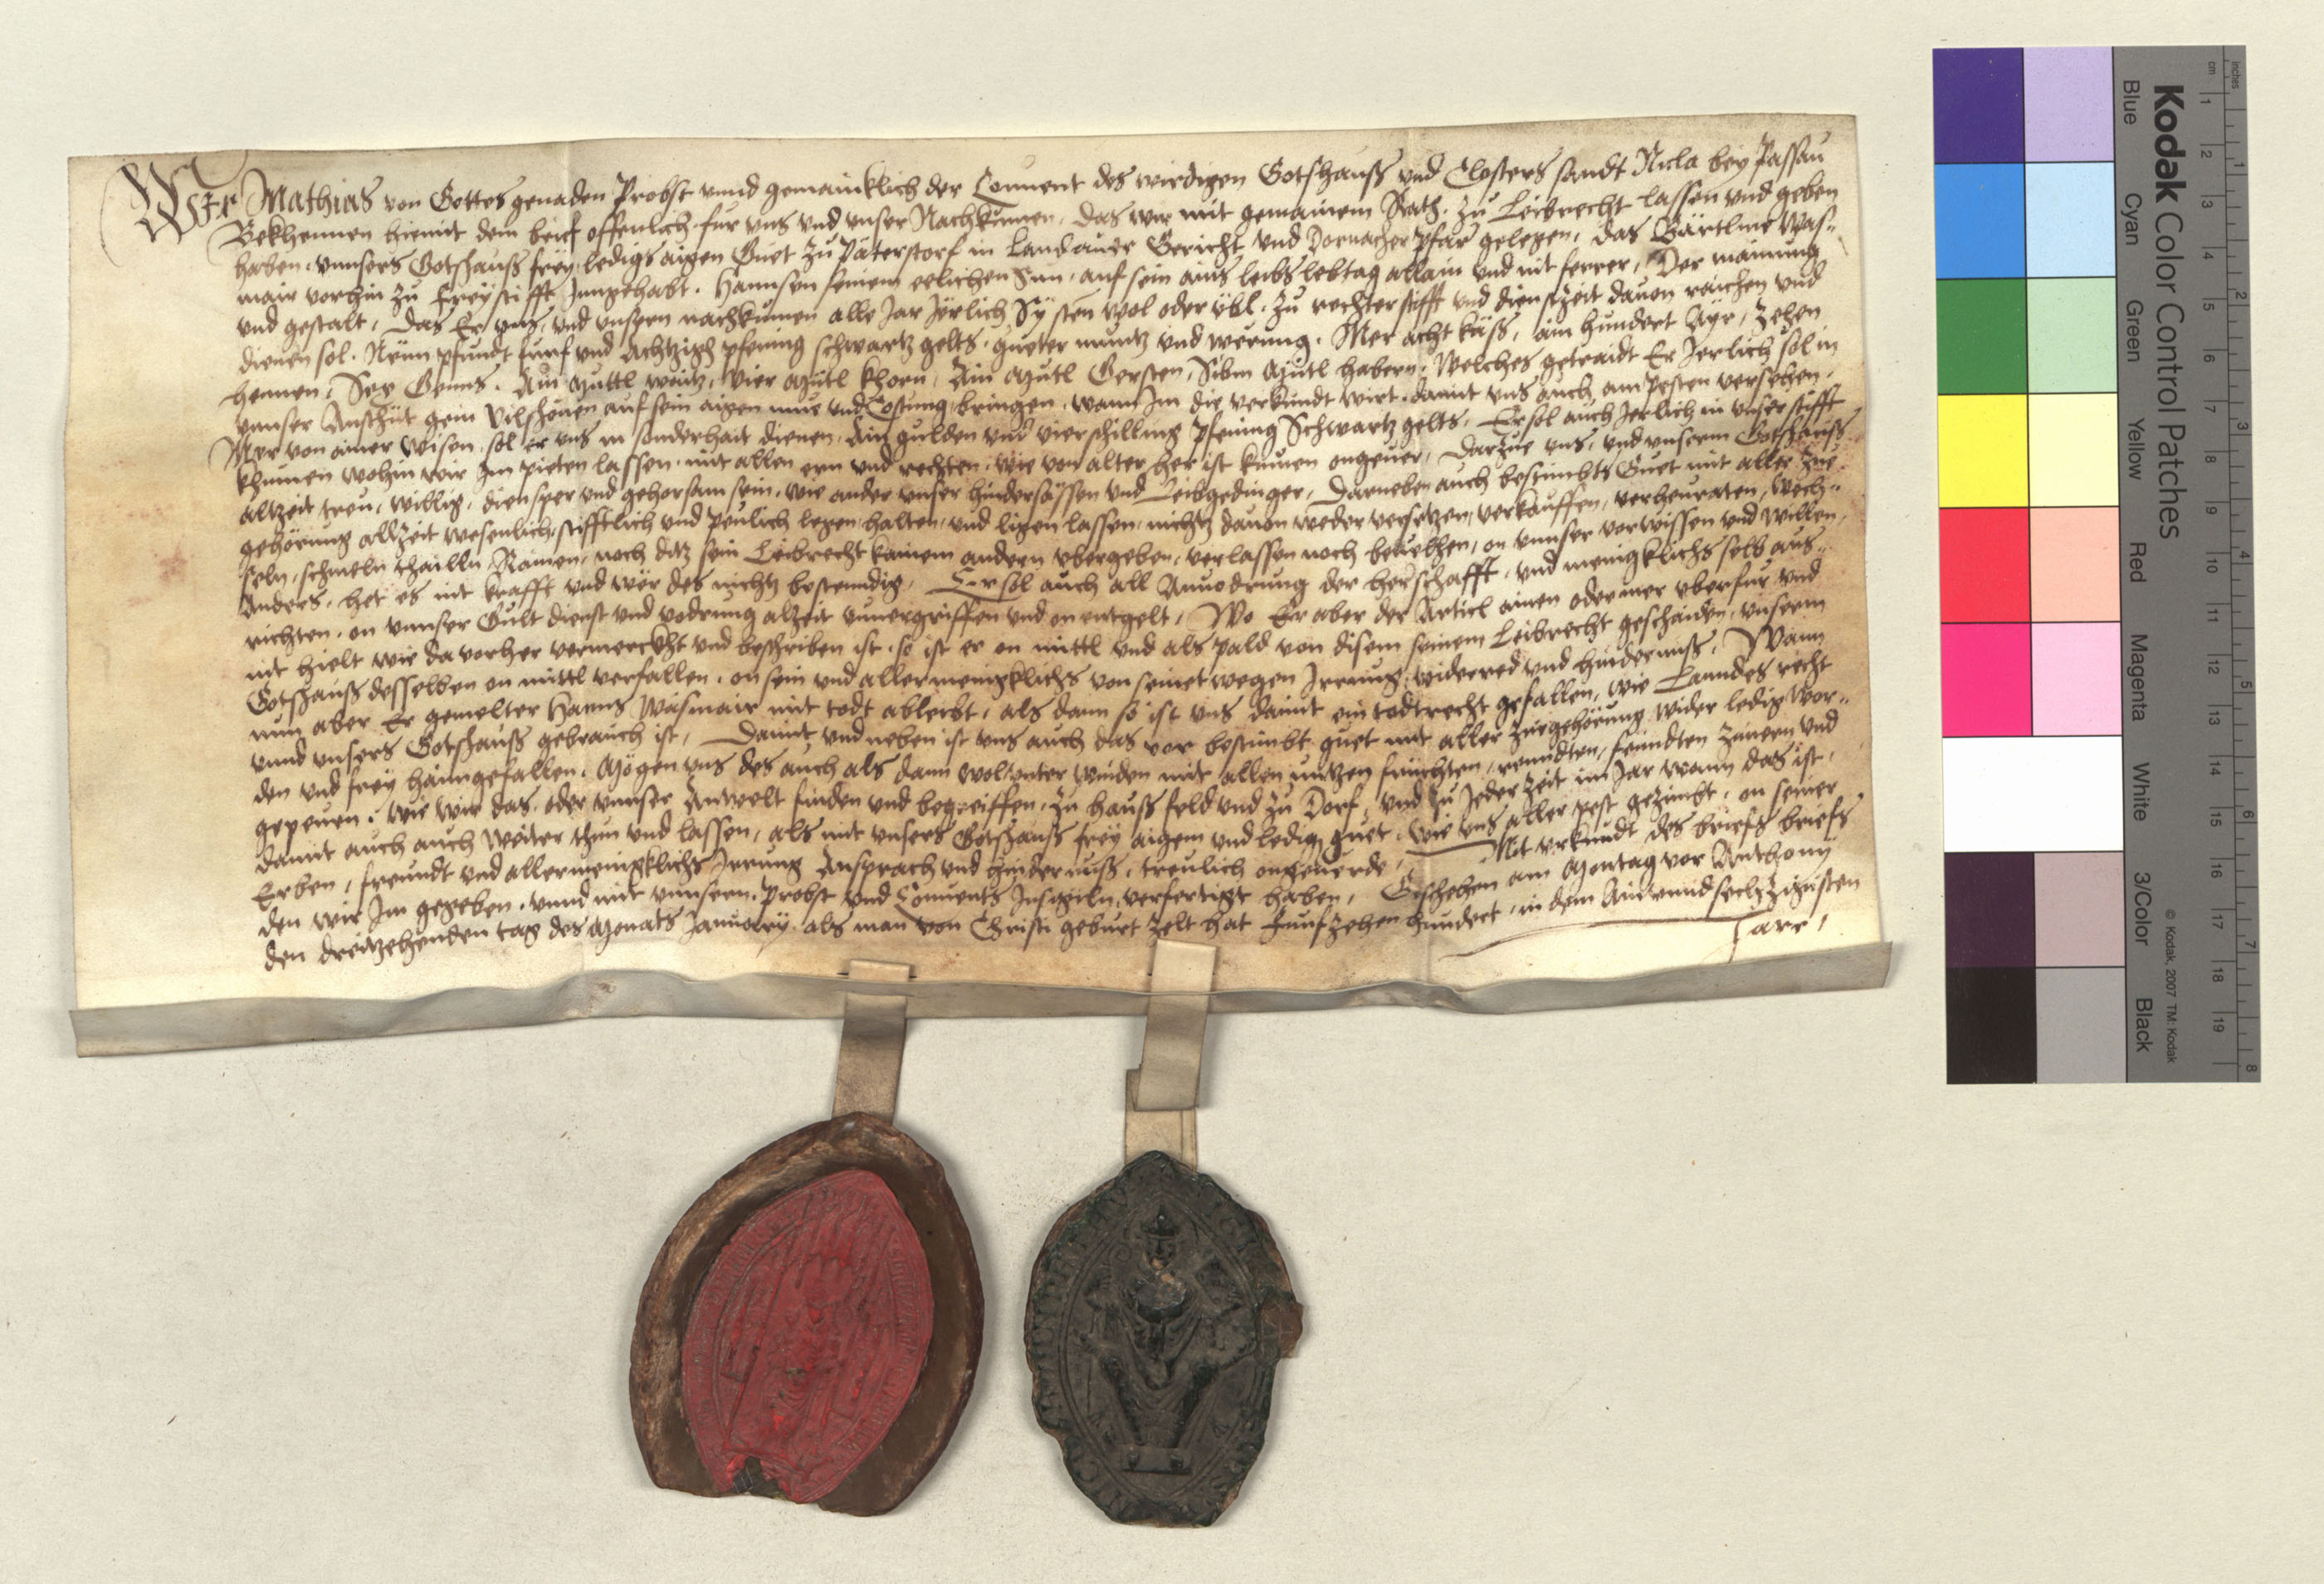 Wir Mathias von Gottes genaden Probst vnnd gemainklich der Conuent des wirdigen Gotshauß vnd Closters sandt Nicla bey Passau
Bekhennen hiemit dem brief offenlich fur vns vnd vnser Nachkumen, das wir mit gemainem Rath, zu Leibrecht lassen vnd geben
haben, vnnsers Gotshauß frey ledigs aigen Guet zu Päterstorf in Landauer Gericht vnd Dornacher Pfar gelegen, das Bärtlme Was-
mair vorhin zu freystifft Inngehabt. Hannsen seinem eelichen Sun, auf sein ains leibs lebtag allain vnd nit ferrer, Der mainung
vnd gestalt, das Er vns, vnd vnsern nachkumen alle Jar Järlich Sy sten wol oder vbl, zu rechter stifft vnd dienstzeit dauon raichen vnd
dienen sol. Neun pfundt funf vnd Achtzigk pfening schwartz gelts, gueter muntz vnd werung. Mer acht käß, ain hundert Ayr, zehen
hennen, Sex Genns. Ain Muttl waitz, vier Mutl khorn, Ain Mutl Gersten, Sibm Mutl habern, Welches getraidt Er Jerlich sol in
vnnser Anschüt gein Vilshouen auf sein aigen mue vnd Costung bringen, wann Im die verkundt wirt, damit vns auch am pesten versehen.
Mer von ainer Wisen, sol er vns in sonderhait dienen, Ain gulden vnd vier schilling pfening Schwartz gelts, Er sol auch Jerlich in vnser stifft
khumen wohin wir Im pieten lassen, mit allen ern vnd rechten, wie von alter her ist kumen ongeuer, Darzue vns, vnd vnserm Gotshauß
altzeit treu, willig, diensper vnd gehorsam sein, wie ander vnser hindersässen vnd Leibgedinger, Darneben auch bestimbts Guet mit aller zue-
gehörung allzeit wesenlich, stifftlich vnd peulich legen halten, vnd ligen lassen, nichtz dauon weder versetzen, verkauffen, verheuraten, Wech-
seln, schmeln thailln, Rainen, noch ditz sein Leibrecht kainem andern vbergeben, verlassen noch beuelhen, on vnnser vorwissen vnd willen,
Anders, het es nit krafft vnd wär des nichtz bestenndig. Er sol auch all Anuodrung der herschafft, vnd menigklichs selb aus-
richten, on vnnser Gult dienst vnd vodrung alzeit vnuergriffen vnd on entgelt, Wo Er aber der Articl ainen oder mer vberfur vnd
nit hielt wie da vorher vermerckht vnd beschriben ist, so ist er on mittl vnd als pald von disem seinem Leibrecht geschaiden, vnserm
Gotshauß desselben on mittl verfallen, on sein vnd allermenigklichs von seinet wegen Irrung, widerred vnd hindernuß, Wann
nun aber Er gemelter Hanns Wasmair mit todt ableibt, als dann so ist vns damit ein todtrecht gefallen, wie Lanndes recht
vnnd vnsers Gotshauß gebrauch ist, Damit vnd neben ist vns auch das vor bestimbt guet mit aller zuegehörung wider ledig Wor-
den vnd frey haimgefallen. Mögen vns des auch als dann wol vnter winden mit allen nutzen fruchten, renndten, feinndten zäunern vnd
gepeuen, wie wir das, oder vnnser Anwelt finden vnd begreiffen, zu hauß feld vnd zu Dorf, vnd zu Jeder zeit im Jar wann das ist,
damit auch auch weiter thun vnd lassen, als mit vnsers Gotshauß frey aigem vnd ledig guet, wie vns aller pest gezimbt, on seiner
Erben, freundt vnd allermenigklichs Irrung Ansprach vnd hindernuß, treulich ongeuerde, Mit vrkundt des briefs briefs
den wir Im gegeben, vnnd mit vnnsern, Probst vnd Conuents Insigeln, verfertigt haben, Geschehen am Montag vor Anthony
den dreitzehenden tag des Monats January, als man von Christi geburt zelt hat Funfzehen hundert, in dem Ainvnndsechtzigisten
Jare,
Kodak Color Control Patches
Blue Cyan Green Yellow Red Magenta White 3/Color Black
© Kodak, 2007 TM: Kodak
cm 1 2 3 4 5 6 7 8 9 10 11 12 13 14 15 16 17 18 19
inches 1 2 3 4 5 6 7 8